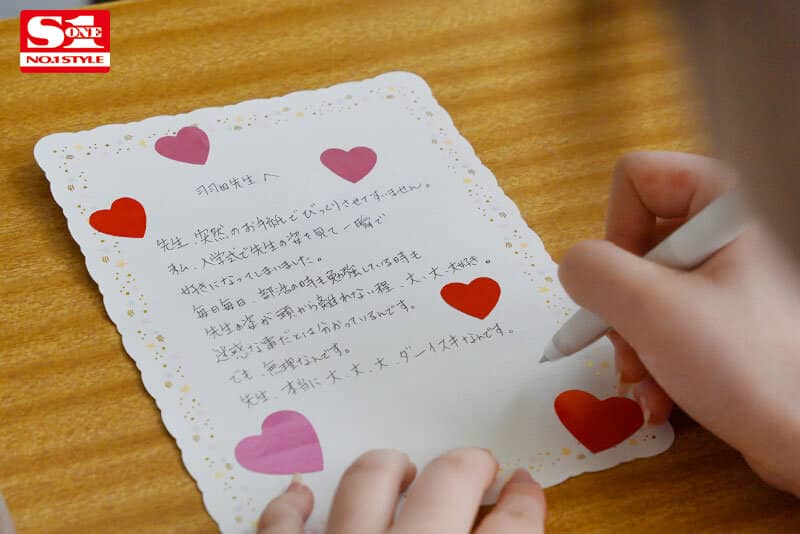 S1
ONE
NO.1 STYLE
羽田先生へ
先生、突然のお手紙でびっくりさせてすいません。
私、入学式で先生の姿を見て一瞬で
好きになってしまいました。
毎日毎日、部活の時も勉強している時も
先生の姿が頭から離れない程、大、大、大好き。
迷惑な事だとは分かっているんです。
でも無理なんです。
先生、本当に大、大、大、ダーイスキなんです。